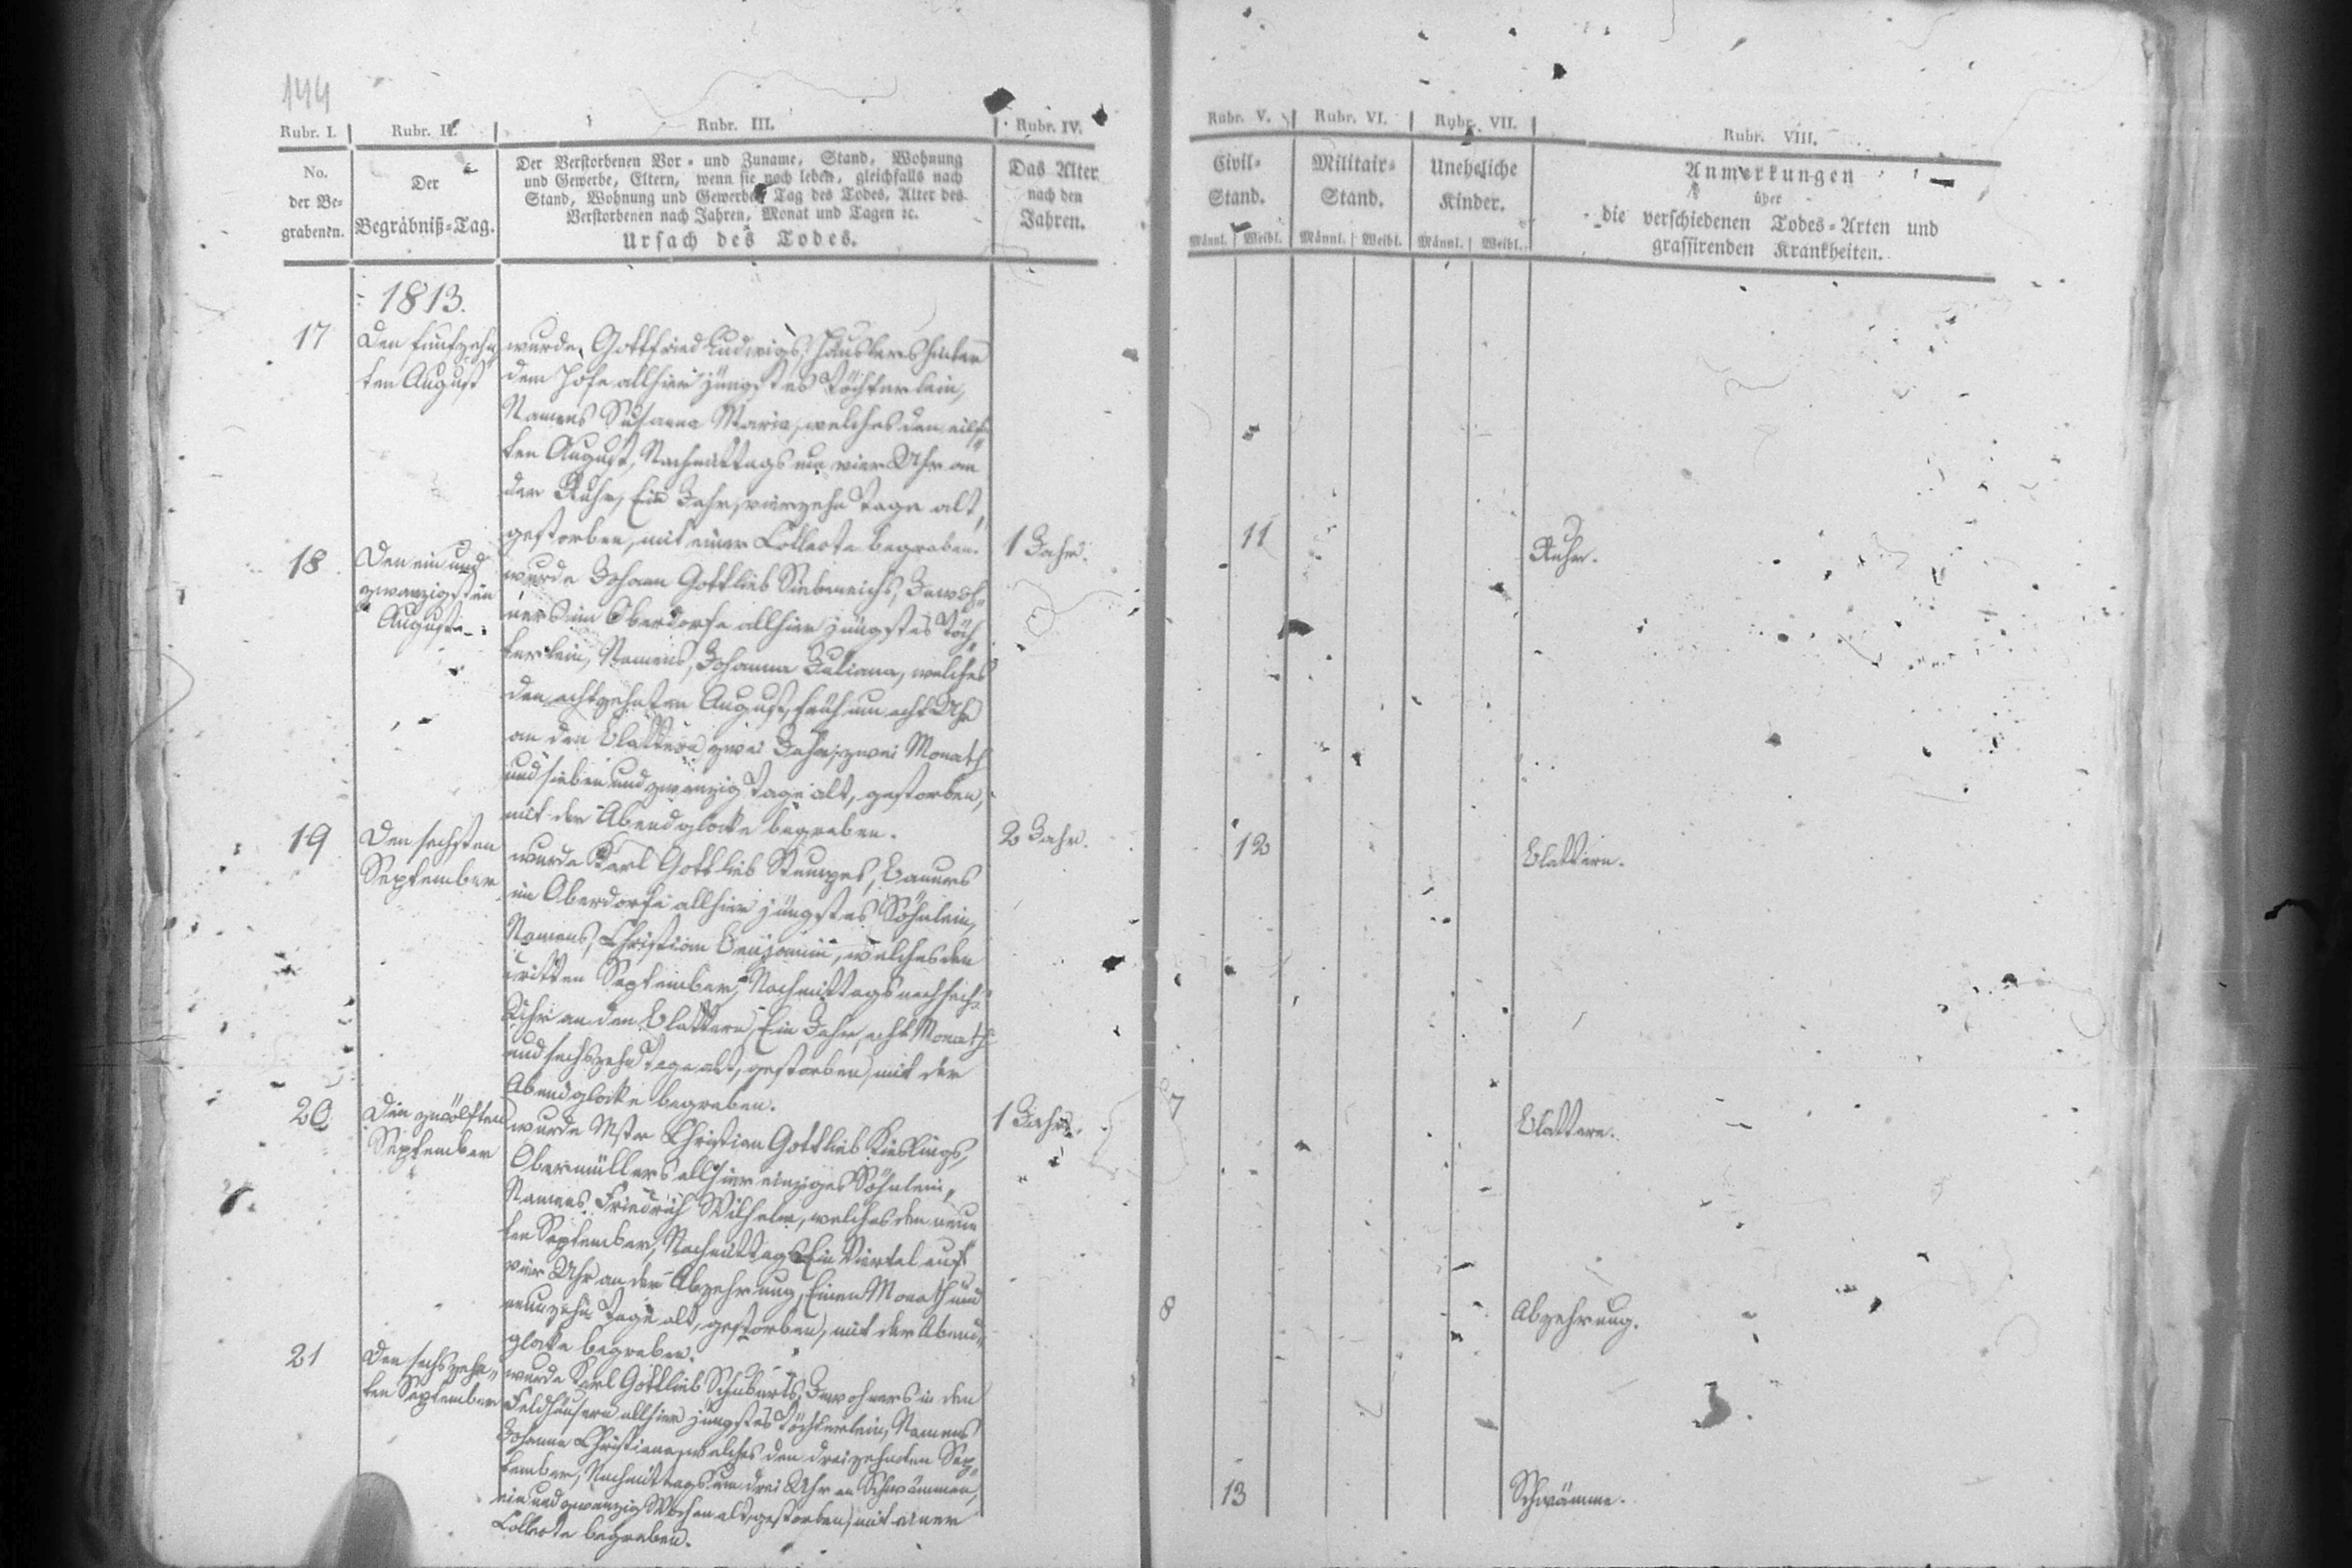 144
Rubr. I. Rubr. II. Rubr. III. Rubr. IV. Rubr. V. Rubr. VI. Rubr. VII. Rubr. VIII.
No. der Be- grabenen.
Der Begräbniß-Tag.
Der Verstorbenen Vor- und Zuname, Stand, Wohnung
und Gewerbe, Eltern, wenn sie noch leben, gleichfalls nach
Stand, Wohnung und Gewerbe, Tag des Todes, Alter des
Verstorbenen nach Jahren, Monat und Tagen ec.
Ursach des Todes.
Das Alter
nach den
Jahren.
Civil-
Stand.
Männl. Weibl.
Militair-
Stand.
Männl. Weibl.
Uneheliche
Kinder.
Männl. Weibl.
Anmerkungen
über
die verschiedenen Todes-Arten und
grassirenden Krankheiten.
1813.
17
Den funfzehn
ten August
wurde, Gottfried Ludwigs, Häuslers hinter
dem Hofe allhier jüngstes Töchterlein,
Namens Susanna Maria, welches den eilf-
ten August, Nachmittags um vier Uhr an
der Ruhr, Ein Jahr, vierzehn Tage alt,
gestorben, mit einer Collecte begraben.
1 Jahr.
11
Ruhr.
18
Den ein und
zwanzigsten
August.
wurde Johann Gottlieb Siebeneichs, Inwoh-
ners im Oberdorfe allhier jüngstes Töch-
terlein, Namens, Johanna Juliana, welches
den achtzehnten August, früh um acht Uhr
an den Blattern zwei Jahr, zwei Monath
und sieben und zwanzig Tage alt, gestorben,
mit der Abendglocke begraben.
2 Jahr.
12
Blattern.
19
Den sechsten
September
wurde Karl Gottlieb Stumpes, Bauers
im Oberdorfe allhier jüngstes Söhnlein,
Namens, Christian Benjamin, welches den
dritten September, Nachmittags nach sechs
Uhr an den Blattern, Ein Jahr, acht Monath
und sechszehn Tage alt, gestorben, mit der
Abendglocke begraben.
1 Jahr.
7
Blattern.
20
Den zwölften
September
wurde Mstr Christian Gottlieb Kieslings,
Obermüllers allhier einziges Söhnlein,
Namens. Friedrich Wilhelm, welches den neun
ten September, Nachmittags Ein Viertel auf
vier Uhr an der Abzehrung, Einen Monath und
neunzehn Tage alt, gestorben, mit der Abend-
glocke begraben.
8
Abzehrung.
21
Den sechszehn-
ten September
wurde Karl Gottlieb Schuberts, Inwohners in den
Feldhäusern allhier jüngstes Töchterlein, Namens
Johanne Christiane, welches den dreizehnten Sep-
tember, Nachmittags um drei Uhr an Schwämmen,
ein und zwanzig Wochen alt, gestorben, mit einer
Collecte begraben.
13
Schwämme.